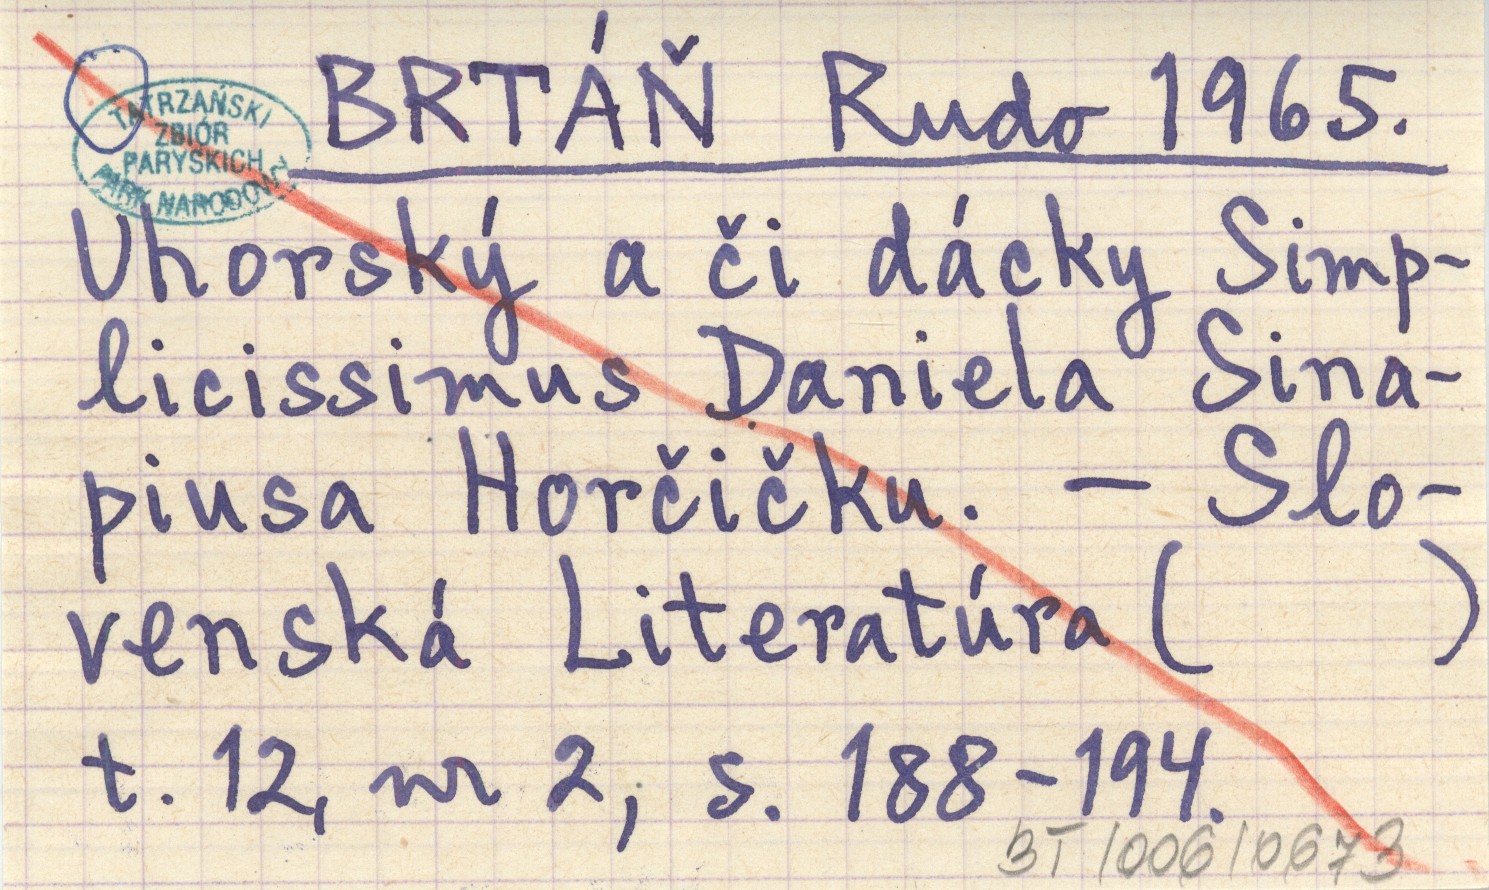 TATRZAŃSKI
ZBIÓR
PARYSKICH
PARK NARODOWY
BRTÁŇ Rudo 1965.
Uhorský a či dácky Simp-
licissimus Daniela Sina-
piusa Horčičku. — Slo-
venská Literatúra ( )
t. 12, nr 2, s. 188-194.
BT/006/0673